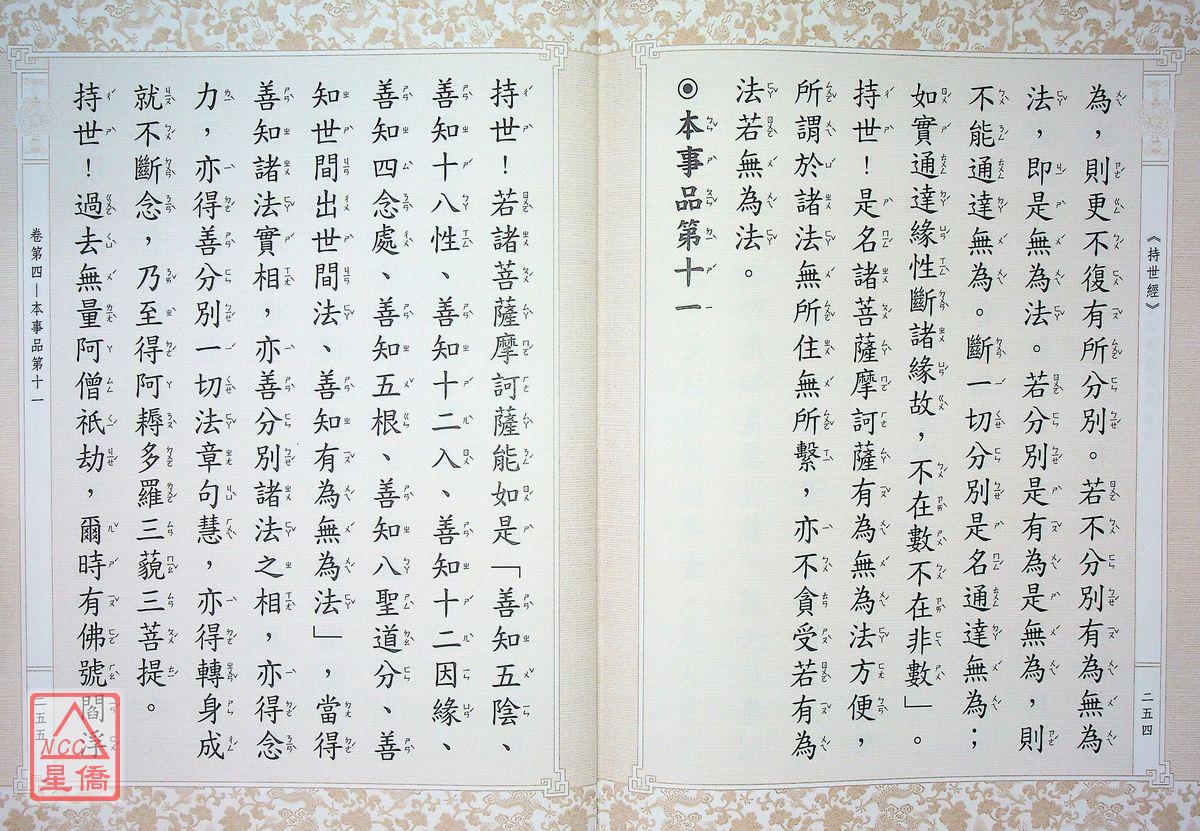 《持世經》
二五四
為，則更不復有所分別。若不分別有為無為
法，即是無為法。若分別是有為是無為，則
不能通達無為。斷一切分別是名通達無為；
如實通達緣性斷諸緣故，不在數不在非數」。
持世！是名諸菩薩摩訶薩有為無為法方便，
所謂於諸法無所住無所繫，亦不貪受若有為
法若無為法。
◎本事品第十一
持世！若諸菩薩摩訶薩能如是「善知五陰、
善知十八性、善知十二入、善知十二因緣、
善知四念處、善知五根、善知八聖道分、善
知世間出世間法、善知有為無為法」，當得
善知諸法實相，亦善分別諸法之相，亦得念
力，亦得善分別一切法章句慧，亦得轉身成
就不斷念，乃至得阿耨多羅三藐三菩提。
持世！過去無量阿僧祇劫，爾時有佛號閻浮
卷第四－本事品第十一
二五五
NCC
星僑